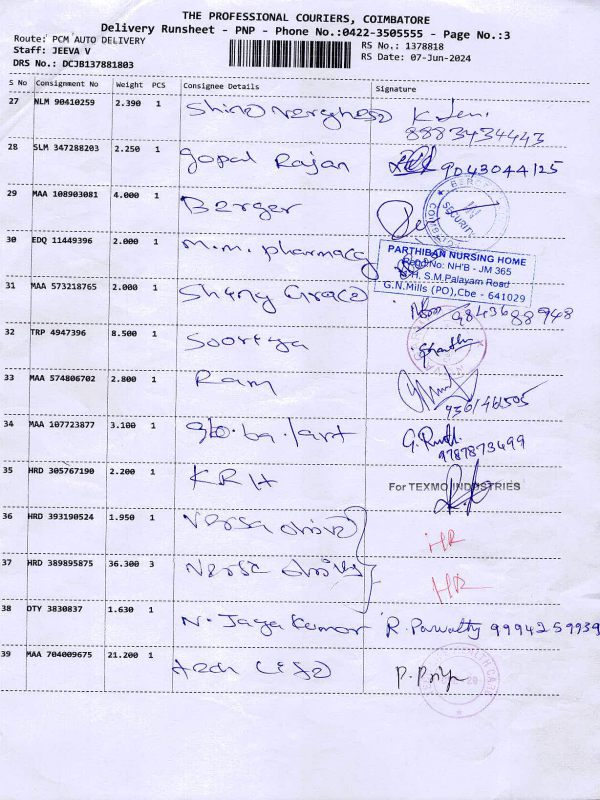 THE PROFESSIONAL COURIERS, COIMBATORE
Delivery Runsheet - PNP - Phone No.:0422-3505555 - Page No.:3
Route: PCM AUTO DELIVERY
Staff: JEEVA V
RS No.: 1378818
DRS No.: DCJB137881803
RS Date: 07-Jun-2024
S No Consignment No Weight PCS Consignee Details Signature
27 NLM 90410259 2.390 1 Shino Verghese
8883434443
28 SLM 347288203 2.250 1 Gopal Rajan 9043044125
29 MAA 108903081 4.000 1 Berger
SECURITY
30 EDQ 11449396 2.000 1 M.M. Pharmacy
PARTHIBAN NURSING HOME
Regd No: NH'B - JM 365
S.M.Palayam Road
G.N.Mills (PO),Cbe - 641029
31 MAA 573218765 2.000 1 Shiny Grace 9843688948
32 TRP 4947396 8.500 1 Soorya
33 MAA 574806702 2.800 1 Ram
34 MAA 107723877 3.100 1 glo.ba.lart
9787873499
35 HRD 305767190 2.200 1 KRH For TEXMO INDUSTRIES
36 HRD 393190524 1.950 1 Versa drive HR
37 HRD 389895875 36.300 3 Versa drives HR
38 DTY 3830837 1.630 1 N. Jaya Kumar R. Parvathy 9994259939
39 MAA 704009675 21.200 1 P. Priya